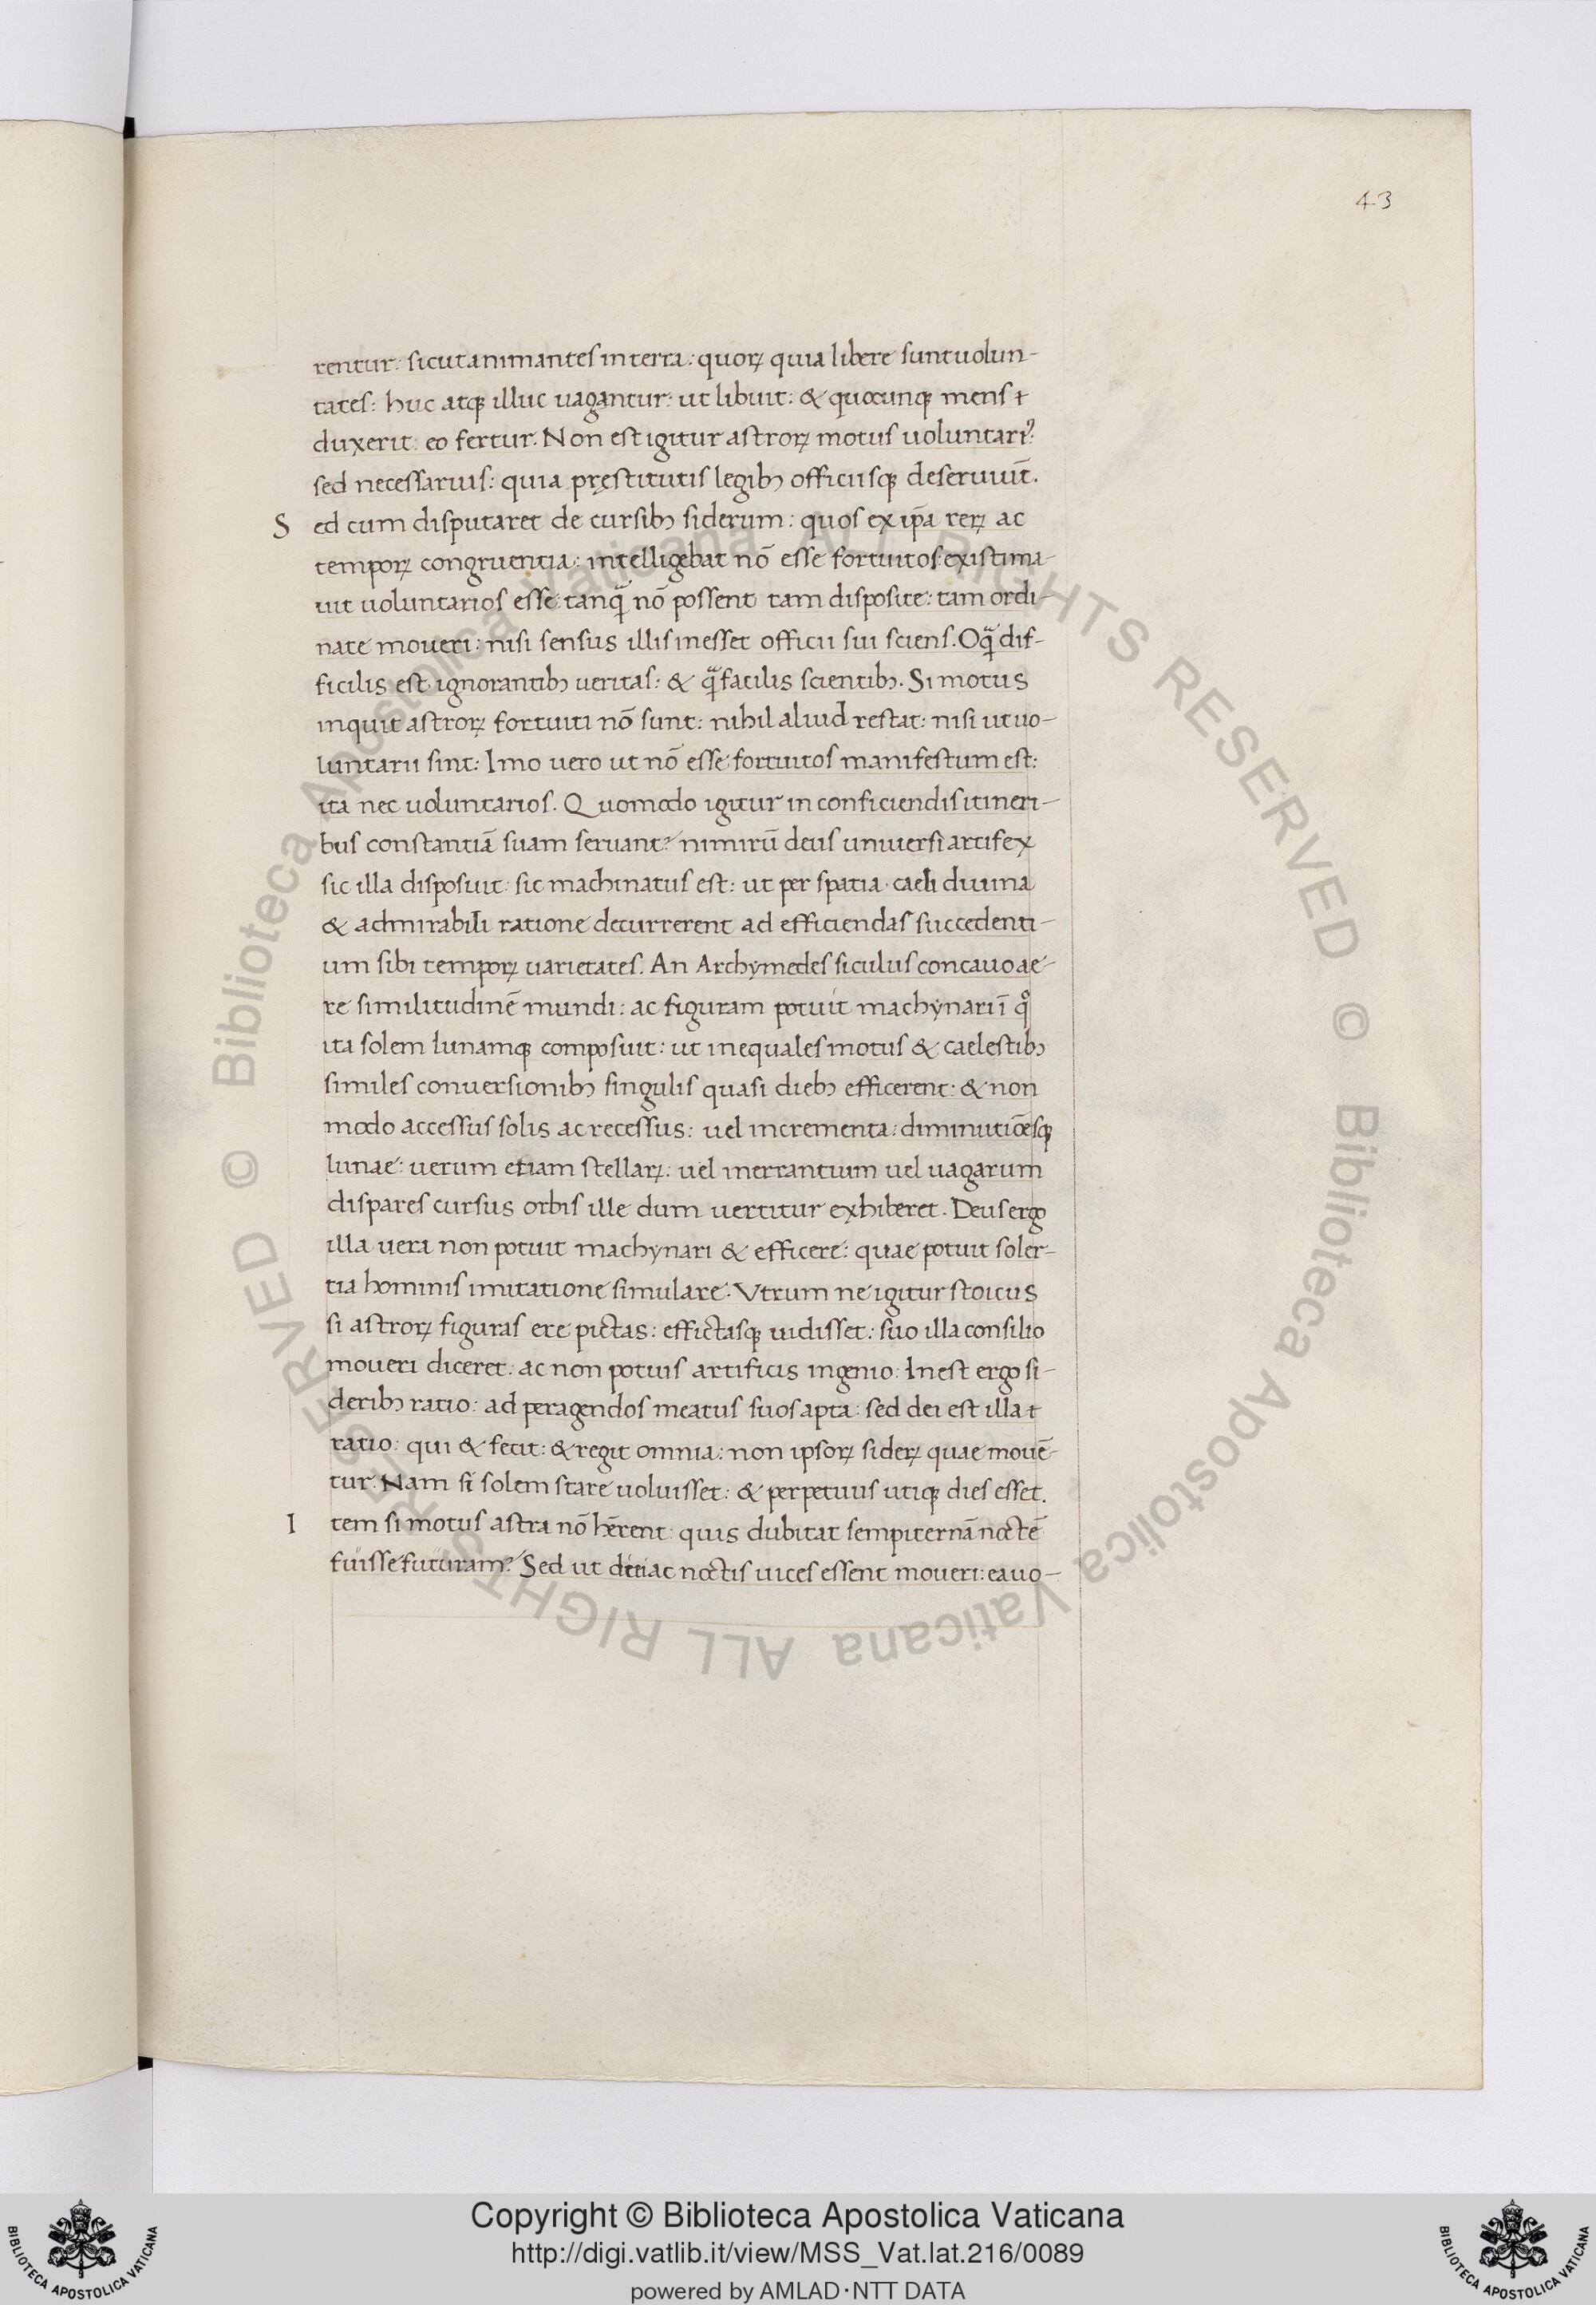 43
rentur: sicut animantes in terra: quoꝝ quia libere sunt uolun-
tates: huc atqꝫ illuc uagantur: ut libuit: & quocunqꝫ mens
duxerit: eo fertur. Non est igitur astroꝝ motus uoluntariꝰ:
sed necessarius: quia pręstitutis legibꝫ officiisqꝫ deseruiūt.
S ed cum disputaret de cursibꝫ siderum: quos ex ip̄a reꝝ ac
tempoꝝ congruentia: intelligebat nō esse fortuitos: existima-
uit uoluntarios esse: tanq̃ nō possent tam disposite: tam ordi-
nate moueri: nisi sensus illis inesset officii sui sciens. O q̃ dif-
ficilis est ignorantibꝫ ueritas: & q̃ facilis scientibꝫ. Si motus
inquit astroꝝ fortuiti nō sunt: nihil aliud restat: nisi ut uo-
luntarii sint: Imo uero ut nō esse fortuitos manifestum est:
ita nec uoluntarios. Quomodo igitur in conficiendis itineri-
bus constantiā suam seruant? nimirū deus uniuersi artifex
sic illa disposuit: sic machinatus est: ut per spatia caeli diuina
& admirabili ratione decurrerent ad efficiendas succedenti-
um sibi tempoꝝ uarietates. An Archymedes siculus concauo ae-
re similitudinē mundi: ac figuram potuit machynari ī qͦ
ita solem lunamqꝫ composuit: ut inequales motus & caelestibꝫ
similes conuersionibꝫ singulis quasi diebꝫ efficerent: & non
modo accessus solis ac recessus: uel incrementa: diminutiōesqꝫ
lunae: uerum etiam stellaꝝ: uel inerrantium uel uagarum
dispares cursus orbis ille dum uertitur exhiberet. Deus ergo
illa uera non potuit machynari & efficere: quae potuit soler-
tia hominis imitatione simulare. Vtrum ne igitur stoicus
si astroꝝ figuras ere pictas: effictasqꝫ uidisset: suo illa consilio
moueri diceret: ac non potius artificis ingenio: Inest ergo si-
deribꝫ ratio: ad peragendos meatus suos apta: sed dei est illa
ratio: qui & fecit: & regit omnia: non ipsoꝝ sideꝝ quae mouē-
tur. Nam si solem stare uoluisset: & perpetuus utiqꝫ dies esset.
I tem si motus astra nō hērent: quis dubitat sempiternā noctē
fuisse futuram? Sed ut diei ac noctis uices essent moueri: ea uo-
© Biblioteca Apostolica Vaticana ALL RIGHTS RESERVED © Biblioteca Apostolica Vaticana ALL RIGHTS RESERVED
Copyright © Biblioteca Apostolica Vaticana
http://digi.vatlib.it/view/MSS_Vat.lat.216/0089
powered by AMLAD·NTT DATA
BIBLIOTECA APOSTOLICA VATICANA
BIBLIOTECA APOSTOLICA VATICANA